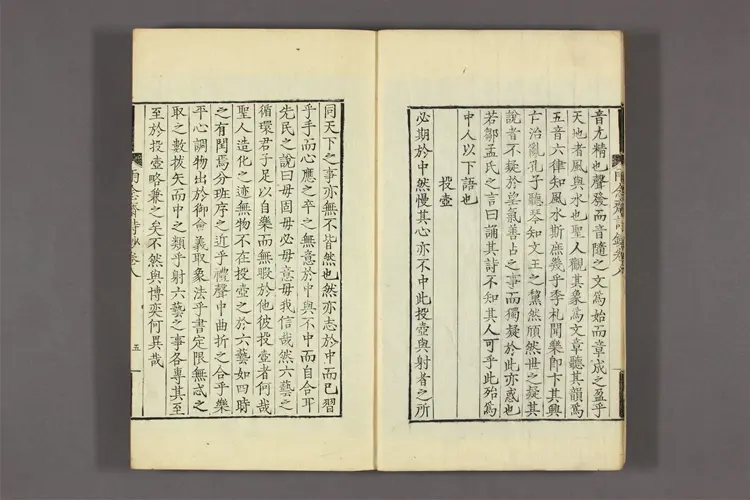 音尤精也聲發而音隨之文爲始而章成之盈乎
天地者風與水也聖人觀其象爲文章聽其韻爲
五音六律知風水斯庶幾乎季札聞樂即卞其興
亡治亂孔子聽琴知文王之黧然頎然世之擬其
說者不疑於望氣善占之事而獨疑於此亦惑也
若鄒孟氏之言曰誦其詩不知其人可乎此殆爲
中人以下語也
投壺
必期於中然慢其心亦不中此投壺與射者之所
同天下之事亦無不皆然也然亦志於中而已習
乎手而心應之卒之無意於中與不中而自合耳
先民之說曰毋固毋必毋意毋我信哉然六藝之
循環君子足以自樂而無暇於他彼投壺者何哉
聖人造化之迹無物不在投壺之於六藝如四時
之有閏焉分班序之近乎禮聲中曲折之合乎樂
平心調物出於御會義取象法乎書定限無忒之
取之數拔矢而中之類乎射六藝之事各專其至
至於投壺略兼之矣不然與博奕何異哉
卷八
五